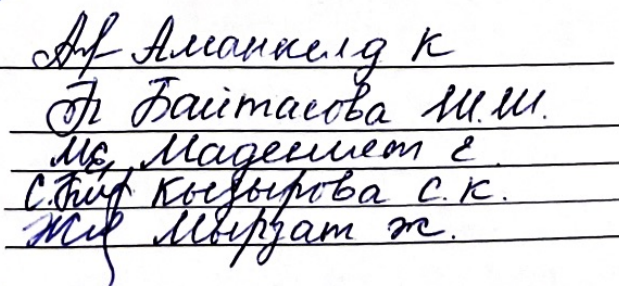 Аманкелд К
Байтасова Ш.Ш.
Мадениет Е.
Кызырова С.К.
Мырзат Ж.